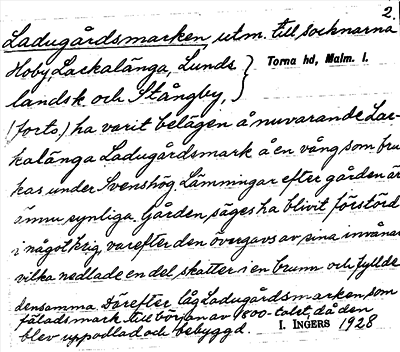 2.
Ladugårdsmarken utm. till socknarna
Hoby, Lackalänga, Lunds
landsk och Stångby, } Torna hd, Malm. l.
(forts.) ha varit belägen å nuvarande Lac-
kalänga Ladugårdsmark å en vång som bru
kas under Svenshög. Lämningar efter gården är
ännu synliga. Gården säges ha blivit förstörd
i något krig, varefter den övergavs av sina invånar
vilka nedlade en del skatter i en brunn och fyllde
densamma. Därefter låg Ladugårdsmarken som
fäladsmark till början av 1800-talet, då den
blev uppodlad och bebyggd. I. INGERS 1928